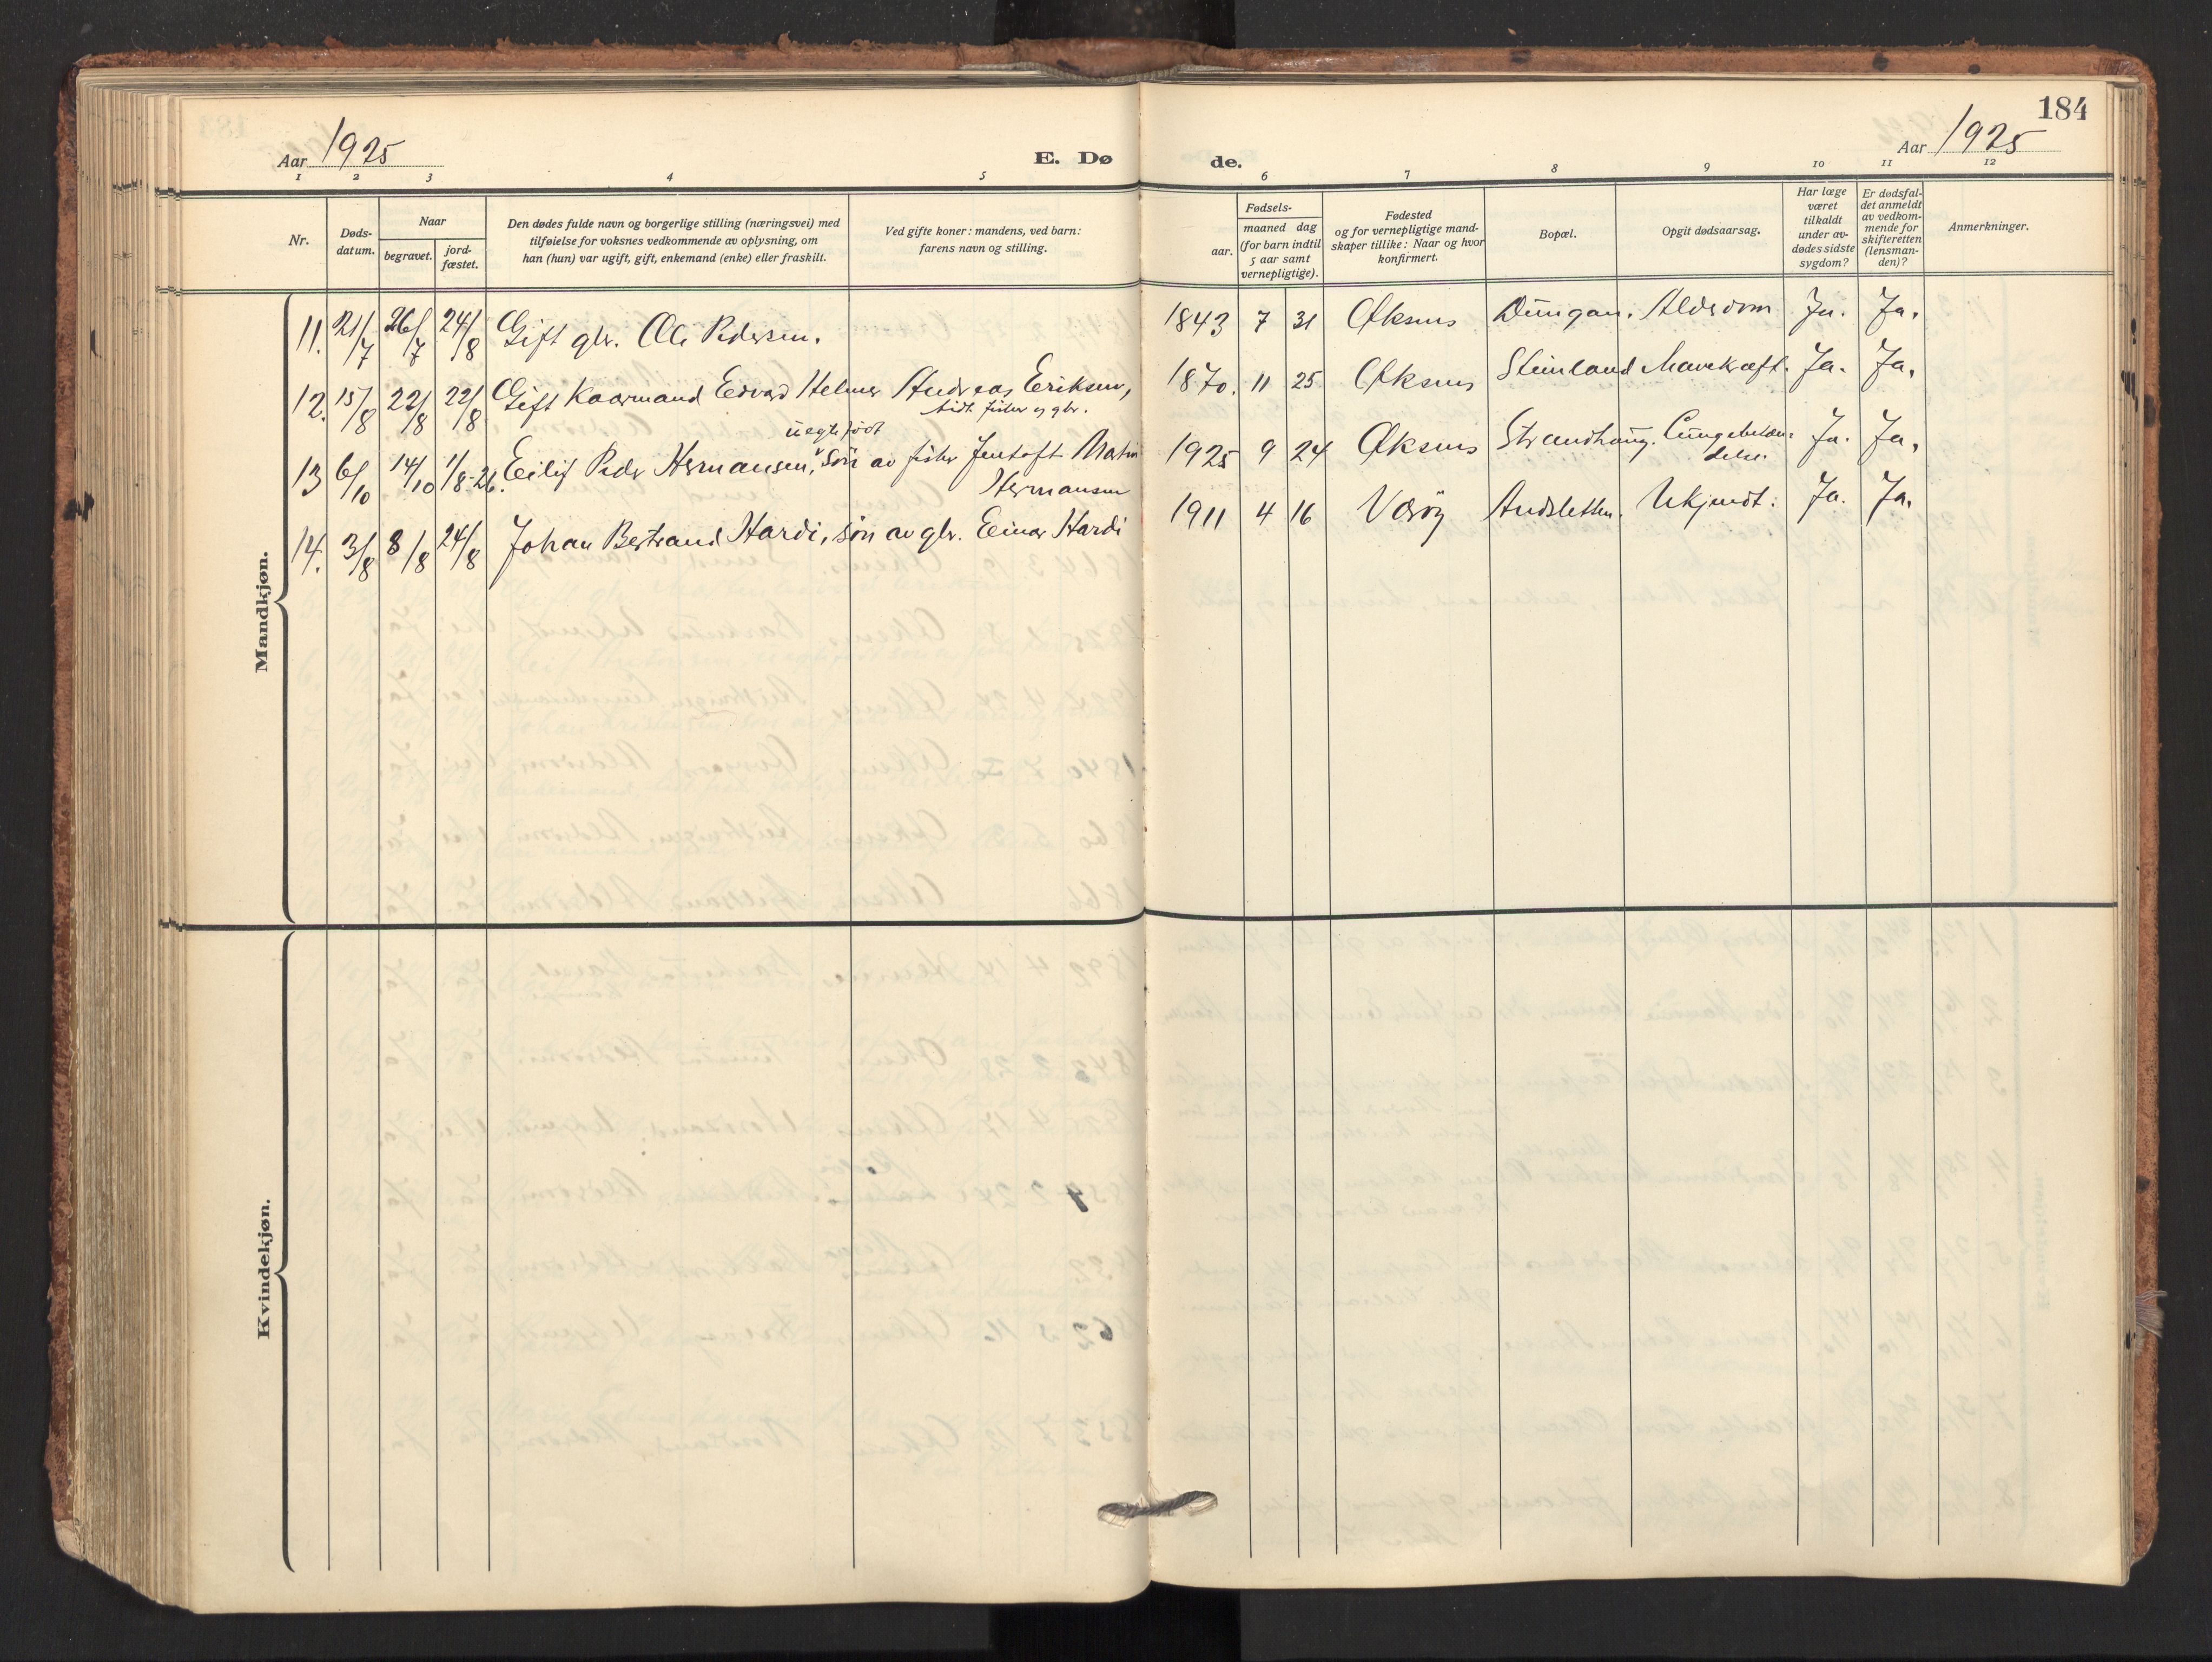 184
Aar 1925
E. Dø
de.
Aar 1925
1 2 3 4 5 6 7 8 9 10 11 12
Nr.
Døds-
datum.
Naar
begravet.
jord-
fæstet.
Den dødes fulde navn og borgerlige stilling (næringsvei) med
tilføielse for voksnes vedkommende av oplysning, om
han (hun) var ugift, gift, enkemand (enke) eller fraskilt.
Ved gifte koner: mandens, ved barn:
farens navn og stilling.
Fødsels-
aar.
maaned dag
(for barn indtil
5 aar samt
vernepligtige).
Fødested
og for vernepligtige mand-
skaper tillike: Naar og hvor
konfirmert.
Bopæl.
Opgit dødsaarsag.
Har læge
været
tilkaldt
under av-
dødes sidste
sygdom?
Er dødsfal-
det anmeldt
av vedkom-
mende for
skifteretten
(lensman-
den)?
Anmerkninger.
Mandkjøn.
11. 21/7 26/7 24/8 Gift gbr. Ole Pedersen. 1843 7 31 Øksnes Dungan. Alderdom Ja. Ja.
12. 15/8 22/8 22/8 Gift Kaarmand Edvard Helmer Andreas Eriksen, 1870. 11 25 Øksnes Steinland Mavekræft. Ja. Ja.
tidl. fisker og gbr.
uegte født
13 6/10 14/10 1/8-26. Eilif Peder Hermansen, søn av fisker Jentoft Martin 1925 9 24 Øksnes Strandhaug. Lungebetæn- Ja. Ja.
Hermansen
delse
14. 3/8 8/8 24/8 Johan Bertrand Hardi, søn av gbr. Einar Hardi 1911 4 16 Værøy Andsletten. Ukjendt. Ja. Ja.
Kvindekjøn.